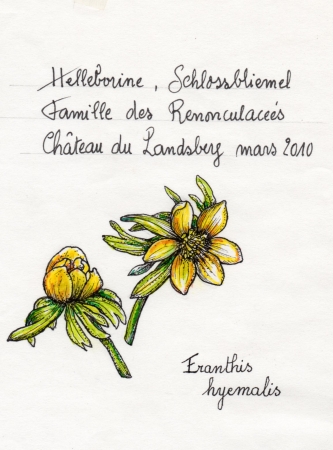 Helleborine, Schlossbliemel
Famille des Renonculacées
Château du Landsberg mars 2010
Eranthis
hyemalis